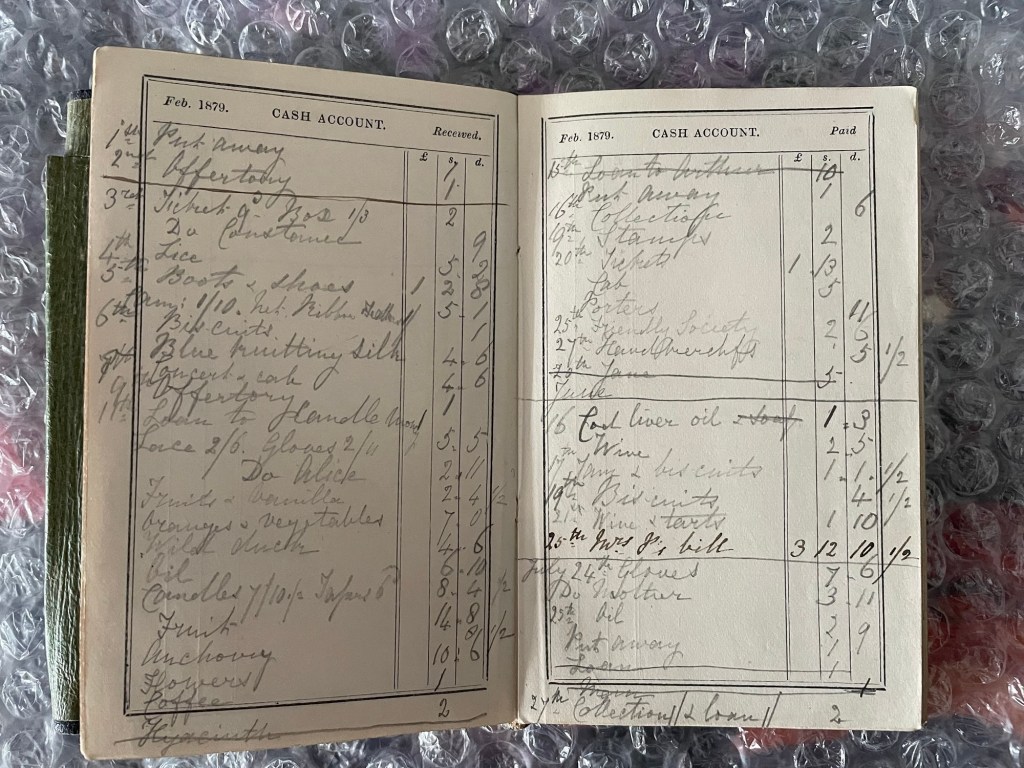 Feb. 1879.
CASH ACCOUNT.
Received.
£ s. d.
1st Put away 1
2nd Offertory 1
3rd Ticket 1/3 2
Do Costumes 9
4th 5 2
5th Boots & shoes 1 2 8
1/10. Ribbon 5 1
6th Biscuits 1
Blue knitting silk 4 6
Concert & cab 4 6
9th Offertory 1
11th Loan to Handle 5 5
Lace 2/6. Gloves 2/11
Do Alice 2 11
Fruits & vanilla 2 4 1/2
Oranges & vegetables 7 0
Wild duck 4 6
Oil 6 10
Candles 7/10 1/2 Tapers 8 4 1/2
Fruit 4 8
Anchovy 10 6
Flowers 1
Coffee 2
Hyacinth
Feb. 1879.
CASH ACCOUNT.
Paid
£ s. d.
15th Loan to Arthur 10
Put away 1
16th Collection 6
19th Stamps 2
20th Tickets 1 13
Cab 5
Porters 11
25th Friendly Society 2 6
27th Handkerchfs 5 1/2
Jane 5
June
16 Cod liver oil & soap 1 3
Wine 2 5
17th Jam & biscuits 1 1 1/2
19th Biscuits 4 1/2
21st Wine & tarts 1 10
25th Mrs J's bill 3 12 10 1/2
July 24th Gloves 7 6
Do Mother 3 11
25th Oil 2 9
Put away 1
Loan 1
27th Collection 1/ & loan 1/ 2